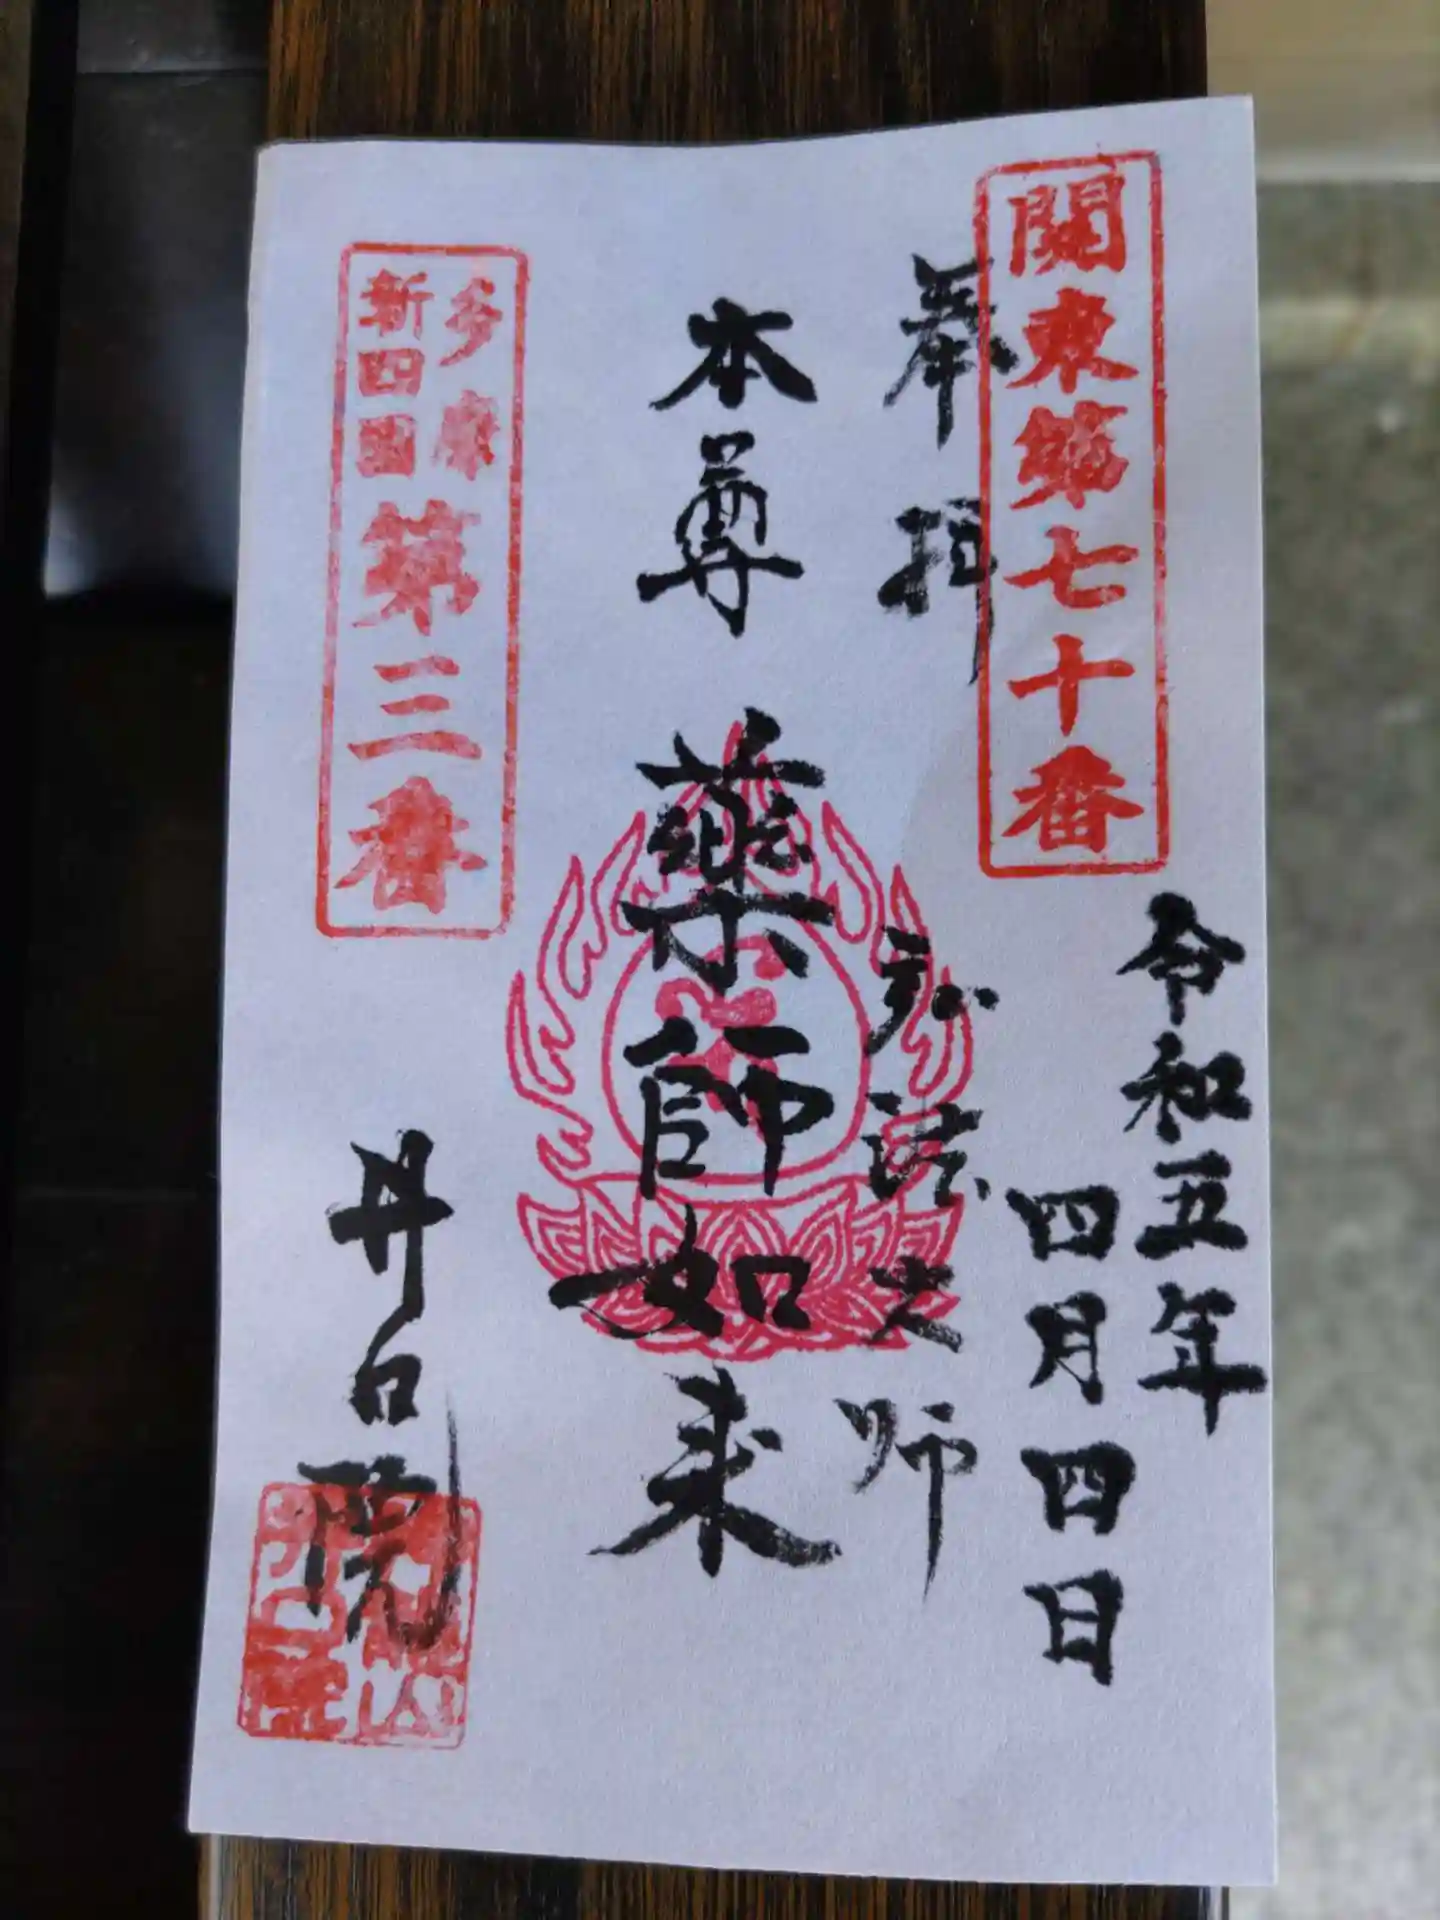 關東第七十番
奉拝
令和五年
四月四日
弘法大師
本尊 薬師如来
多摩
新四國
第三番
井口院